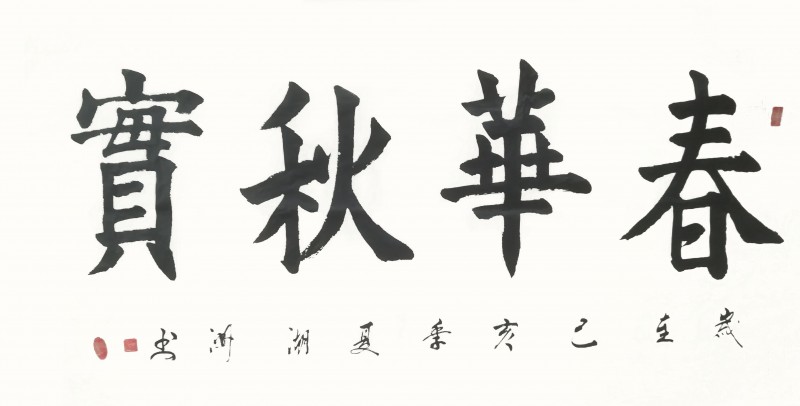 春華秋實
歲在己亥季夏湖